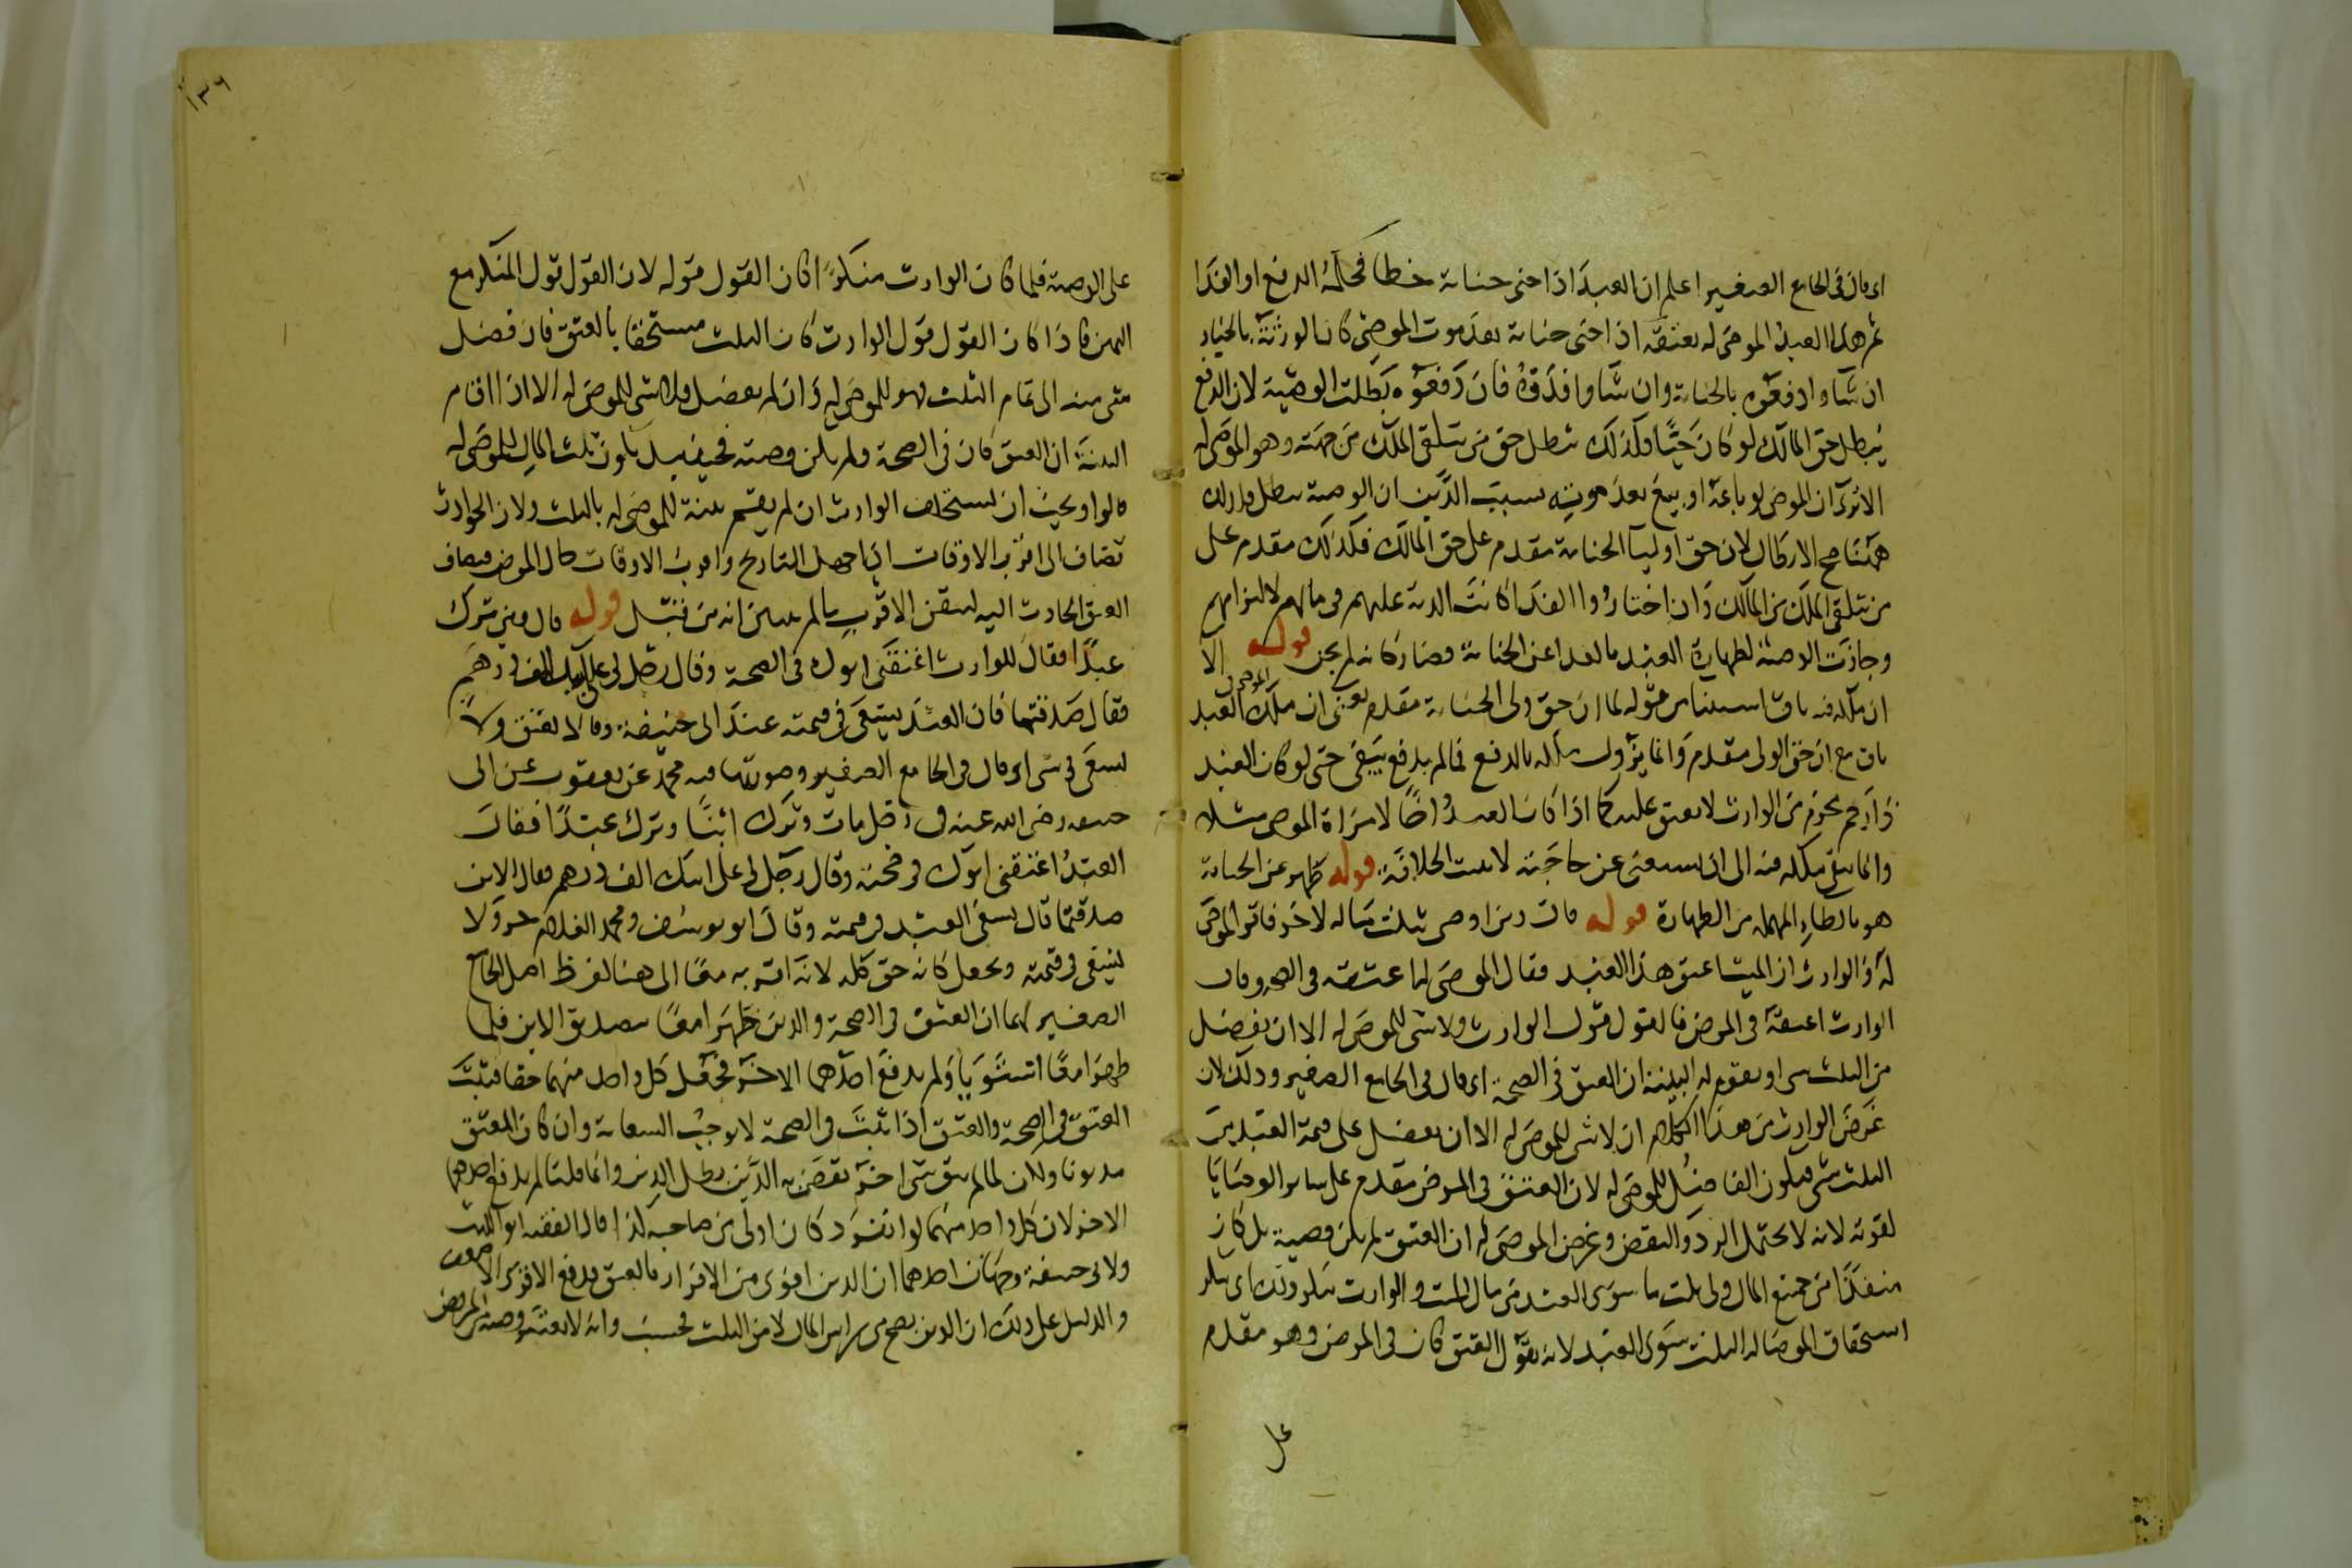 اى قال فى الجامع الصغير اعلم ان العبد اذا جنى جناية خطا فحكمه الدفع او الفدا
ثم هذا العبد الموصى له بعتقه اذا جنى جناية بعد موت الموصى كان الورثة بالخيار
ان شاوا دفعوه بالجناية وان شاوا فدوه فان دفعوه بطلت الوصية لان الدفع
يبطل حق المالك لو كان حيا وكذلك يبطل حق من يتلقى الملك من جهته وهو الموصى له
الا ترى ان الموصى لو باعه او بيع بعد موته بسبب الدين ان الوصية تبطل
ههنا لان حق اوليا الجناية مقدم على حق المالك فكذلك مقدم على
من تتلقى الملك من المالك وان اختاروا الفدا كانت الدية عليهم فى مالهم لالتزامهم
وجازت الوصية لطهارة العبد بالفدا عن الجناية وصار كانه لم يجن قوله الا
ان ملكه فيه باق استثنا من قوله لما ان حق ولى الجناية مقدم يعنى ان ملك الموصى فى العبد
باق مع ان حق الولى مقدم وانما يزول ملكه بالدفع فما لم يدفع يبقى حتى لو كان العبد
ذا رحم محرم من الوارث لا يعتق عليه كما اذا كان العبد اخا لامراة الموصى مثلا
وانما يبقى ملكه فيه الى ان يستغنى عن حاجته لا يثبت الخلافة قوله طهر عن الجناية
هو بالطاء المهملة من الطهارة قوله قال ومن اوصى بثلث ماله لاخر فاقر الموصى
له والوارث ان الميت اعتق هذا العبد فقال الموصى له اعتقه فى الصحة وقال
الوارث اعتقه فى المرض فالقول قول الوارث ولا شى للموصى له الا ان يفضل
من الثلث شى او يقوم له البينة ان العتق فى الصحة اى قال فى الجامع الصغير وذلك لان
غرض الوارث من هذا الكلام ان لا شى للموصى له الا ان يفضل على قيمة العبد من
الثلث شى فيكون الفاضل للموصى له لان العتق فى المرض مقدم على سائر الوصايا
لقوته لانه لا يحتمل الرد والنقض وغرض الموصى له ان العتق لم يكن وصية بل كان
منفذا من جميع المال ولى ثلث ما سوى العبد من مال الميت والوارث ينكر ذلك اى ينكر
استحقاق الموصا له الثلث سوى العبد لانه يقول العتق كان فى المرض وهو مقدم
على
١٣٦
على الوصية فلما كان الوارث منكرا كان القول قوله لان القول قول المنكر مع
اليمين فاذا كان القول قول الوارث كان الثلث مستحقا بالعتق فان فضل
شى منه الى تمام الثلث فهو للموصى له وان لم يفضل فلا شى للموصى له الا اذا اقام
البينة ان العتق كان فى الصحة ولم يكن وصية فحينئذ يكون ثلث المال للموصى له
قالوا ويجب ان يستحلف الوارث ان لم يقم بينة للموصى له بالثلث ولان الحوادث
تضاف الى اقرب الاوقات اذا جهل التاريخ واقرب الاوقات حال المرض فيضاف
العتق الحادث اليه لتيقن الاقرب ما لم يتبين انه من قبل قوله قال ومن ترك
عبدا فقال للوارث اعتقنى ابوك فى الصحة وقال رجل لى على ابيك الف درهم
فقال صدقتما فان العبد يسعى فى قيمته عند ابى حنيفة وقالا يعتق ولا
يسعى فى شى اى قال فى الجامع الصغير وصورتها فيه محمد عن يعقوب عن ابى
حنيفة رضى الله عنه فى رجل مات وترك ابنا وترك عبدا فقال
العبد اعتقنى ابوك فى صحته وقال رجل لى على ابيك الف درهم فقال الابن
صدقتما قال يسعى العبد فى قيمته وقال ابو يوسف ومحمد الغلام حر ولا
يسعى فى قيمته ويجعل كانه حق كله لانه اقر به معا الى هنا لفظ اصل الجامع
الصغير لهما ان العتق فى الصحة والدين ظهرا معا بتصديق الابن فلما
ظهرا معا استويا ولم يدفع احدهما الاخر فجعل كل واحد منهما حقا فثبت
العتق فى الصحة والعتق اذا ثبت فى الصحة لا يوجب السعاية وان كان المعتق
مديونا ولكن لما لم يبق شى اخر يقضى به الدين بطل الدين وانما قلنا لم يدفع احدهما
الاخر لان كل واحد منهما لو انفرد كان اولى من صاحبه كذا قال الفقيه ابو الليث
ولابى حنيفة وجهان احدهما ان الدين اقوى من الاقرار بالعتق فدفع الاقوى الاضعف
والدليل على ذلك ان الدين يصح من راس المال لا من الثلث فحسب وانه لا يعتبر وصية المريض